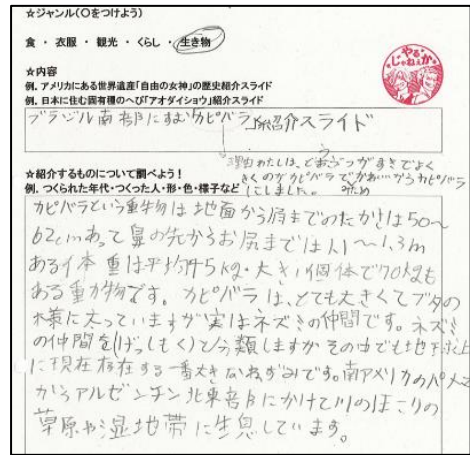 ☆ジャンル(○をつけよう)
食 ・ 衣服 ・ 観光 ・ くらし ・ 生き物
☆内容
例. アメリカにある世界遺産「自由の女神」の歴史紹介スライド
例. 日本に住む固有種のへび「アオダイショウ」紹介スライド
じゃねぇか
ブラジル南部にすむカピバラ 紹介スライド
理由わたしは、どおぶつがすきでよく
きくのがカピバラで からカピバラ
にしました。
☆紹介するものについて調べよう!
例. つくられた年代・つくった人・形・色・様子など
カピバラという動物は地面から肩までのたかさは50〜
62cmあって鼻の先からお尻までは1.1〜1.3m
ある体重は平均45kg・大きい個体で70kgも
ある動物です。カピバラは、とても大きくてブタの
様に太っていますが実はネズミの仲間です。ネズミ
の仲間を(げっしもく)と分類しますがその中でも地球上
に現在存在する一番大きなねずみです。南アメリカのパナマ
からアルゼンチン北東部にかけて川のほとりの
草原や湿地帯に生息しています。